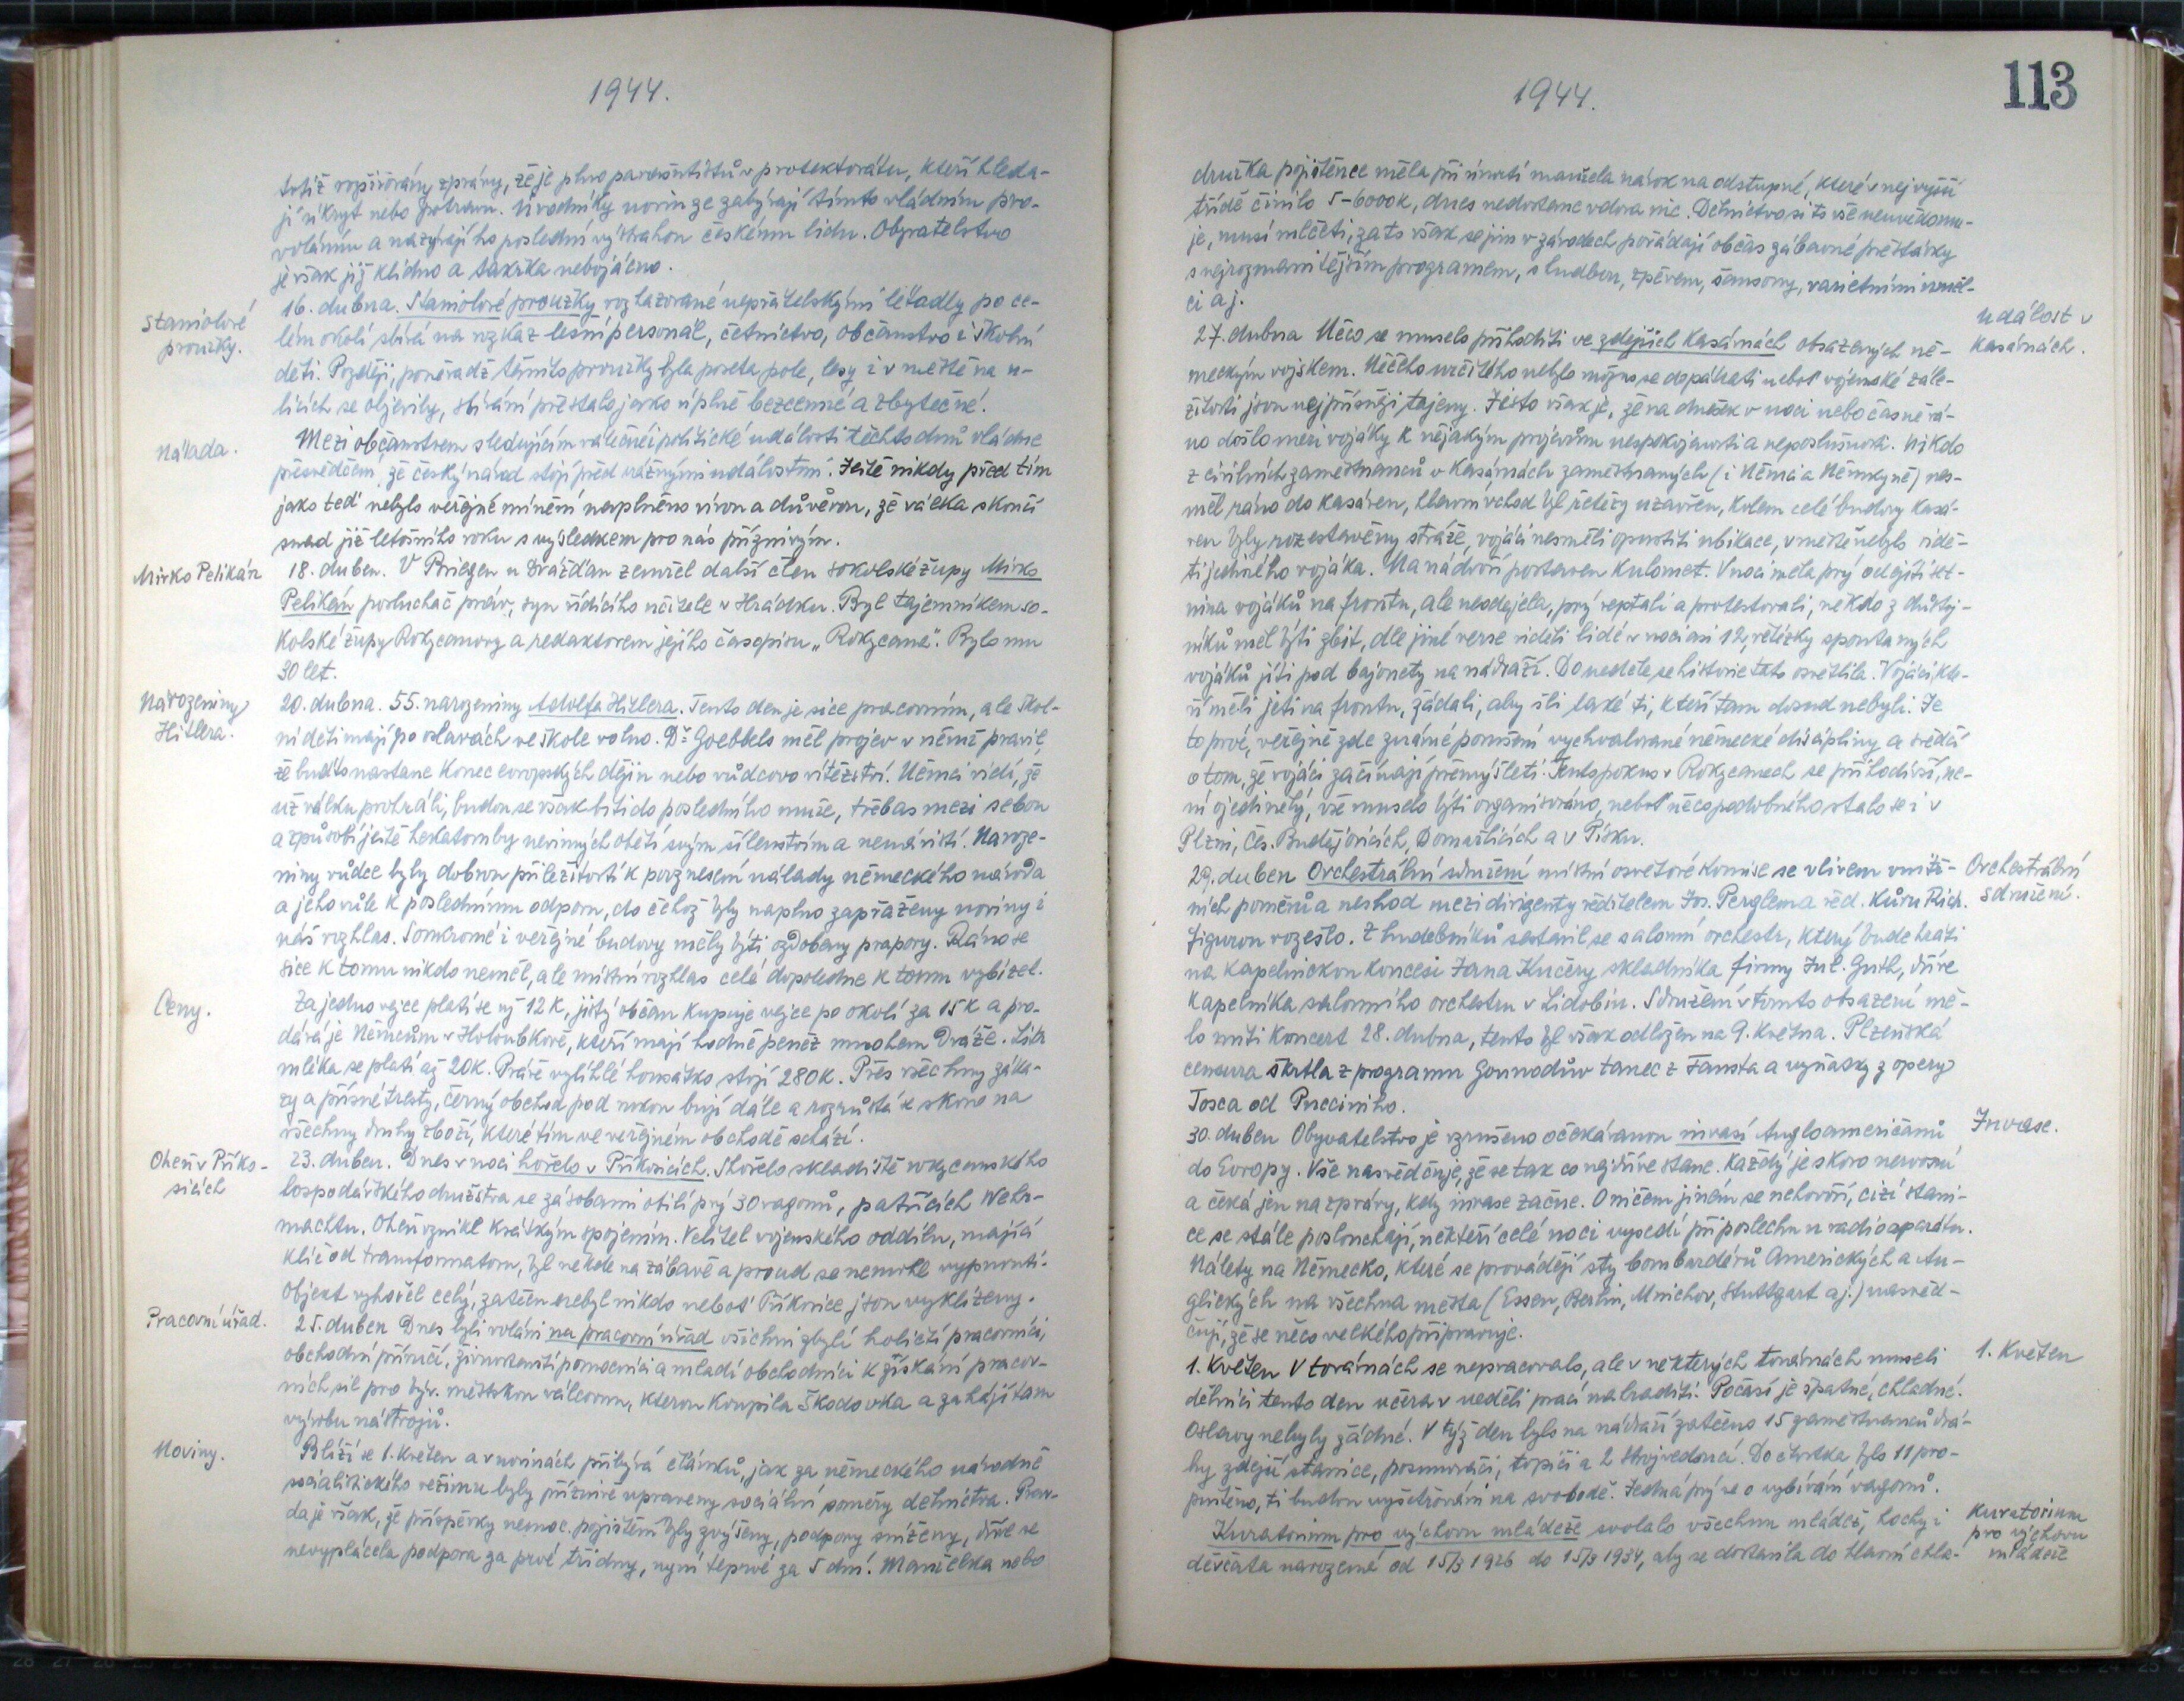 1944.
totiž rozšiřovány zprávy, že je plno parašutistů v protektorátu, kteří hleda-
jí úkryt nebo potravu. Úvodníky novin se zabývají tímto vládním pro-
voláním a nazývají ho poslední výstrahou českému lidu. Obyvatelstvo
je však již klidno a takřka nebojácno.
Staniolové
proužky.
16. dubna. Staniolové proužky rozhazované nepřátelskými letadly po ce-
lém okolí sbírá na rozkaz lesní personál, četnictvo, občanstvo i školní
děti. Později, poněvadž těmito proužky byla poseta pole, lesy i v městě na u-
licích se objevily, sbírání přestalo, jako úplně bezcenné a zbytečné.
Nálada.
Mezi občanstvem sledujícím válečné i politické události těchto dnů vládne
přesvědčení, že český národ stojí před vážnými událostmi. Ještě nikdy před tím
jako teď nebylo veřejné mínění naplněno vírou a důvěrou, že válka skončí
snad již letošního roku s výsledkem pro nás příznivým.
Mirko Pelikán
18. duben. V Briegen u Drážďan zemřel další člen sokolské župy Mirko
Pelikán posluchač práv, syn řídícího učitele v Hrádku. Byl tajemníkem so-
kolské župy Rokycanovy a redaktorem jejího časopisu „Rokycana". Bylo mu
30 let.
Narozeniny
Hitlera.
20. dubna. 55. narozeniny Adolfa Hitlera. Tento den je sice pracovním, ale škol-
ní děti mají po oslavách ve škole volno. Dr. Goebbels měl projev v němž pravil,
že buďto nastane konec evropských dějin nebo vůdcovo vítězství. Němci vidí, že
už válku prohráli, budou se však bíti do posledního muže, třebas mezi sebou
a způsobí ještě hekatomby nevinných obětí svým šílenstvím a nenávistí. Naroze-
niny vůdce byly dobrou příležitostí k povznesení nálady německého národa
a jeho vůle k poslednímu odporu, do čehož byly naplno zapřaženy noviny i
náš rozhlas. Soukromé i veřejné budovy měly býti ozdobeny prapory. Ráno se
sice k tomu nikdo neměl, ale místní rozhlas celé dopoledne k tomu vybízel.
Ceny.
Za jedno vejce platí se nyní 12 K, jistý občan kupuje vejce po okolí za 15 K a pro-
dává je Němcům v Holoubkově, kteří mají hodně peněz mnohem dráže. Litr
mléka se platí až 20 K. Právě vylíhlé housátko stojí 280 K. Přes všechny záka-
zy a přísné tresty, černý obchod pod rukou bují dále a rozrůstá se skoro na
všechny druhy zboží, které tím ve veřejném obchodě schází.
Oheň v Příko-
sicích
23. duben. Dnes v noci hořelo v Příkosicích. Shořelo skladiště rokycanského
hospodářského družstva se zásobami obilí prý 30 vagonů, patřících Wehr-
machtu. Oheň vznikl krátkým spojením. Velitel vojenského oddílu, mající
klíč od transformatoru, byl někde na zábavě a proud se nemohl vypnouti.
Objekt vyhořel celý, zatčen nebyl nikdo neboť Příkosice jsou vyklizeny.
Pracovní úřad.
25. duben Dnes byli voláni na pracovní úřad všichni zbylí holičtí pracovníci,
obchodní příručí, živnostenští pomocníci a mladí obchodníci k získání pracov-
ních sil pro býv. městskou válcovnu, kterou koupila Škodovka a zahájí tam
výrobu nástrojů.
Noviny.
Blíží se 1. květen a v novinách přibývá článků, jak za německého národně
socialistického režimu byly příznivě upraveny sociální poměry dělnictva. Prav-
da je však, že příspěvky nemoc. pojištění byly zvýšeny, podpory sníženy, dříve se
nevyplácela podpora za prvé tři dny, nyní teprve za 5 dní. Manželka nebo
1944.
113
družka pojištěnce měla při úmrtí manžela nárok na odstupné, které v nejvyšší
třídě činilo 5-6000 K, dnes nedostane vdova nic. Dělnictvo si to vše neuvědomu-
je, musí mlčeti, za to však se jim v závodech pořádají občas zábavné přestávky
s nejrozmanitějším programem, s hudbou, zpěvem, šansony, varietními uměl-
ci a j.
Událost v
kasárnách.
27. dubna Něco se muselo přihoditi ve zdejších kasárnách obsazených ně-
meckým vojskem. Něčeho určitého nebylo možno se dopátrati neboť vojenské zále-
žitosti jsou nejpřísněji tajeny. Jisto však je, že na dnešek v noci nebo časně rá-
no došlo mezi vojáky k nějakým projevům nespokojenosti a neposlušnosti. Nikdo
z civilních zaměstnanců v kasárnách zaměstnaných (i Němci a Němkyně) nes-
měl ráno do kasáren, hlavní vchod byl řetězy uzavřen, kolem celé budovy kasá-
ren byly rozestavěny stráže, vojáci nesměli opustiti ubikace, v městě nebylo vidě-
ti jediného vojáka. Na nádvoří postaven kulomet. V noci měla prý odejíti set-
nina vojáků na frontu, ale neodejela, prý reptali a protestovali, někdo z důstoj-
níků měl býti zbit, dle jiné verse viděli lidé v noci asi 12, řetízky spoutaných
vojáků jíti pod bajonety na nádraží. Do neděle se historie tato osvětlila. Vojáci kte-
ří měli jeti na frontu, žádali, aby šli také ti, kteří tam dosud nebyli. Je
to prvé, veřejně zde známé porušení vychvalované německé disciplíny a svědčí
o tom, že vojáci začínají přemýšleti. Tento pokus v Rokycanech se přihodivší, ne-
ní ojedinělý, vše muselo býti organisováno, neboť něco podobného stalo se i v
Plzni, Čes. Budějovicích, Domažlicích a v Písku.
Orchestrální
sdružení.
29. duben Orchestrální sdružení místní osvětové komise se vlivem vnitř-
ních poměrů a neshod mezi dirigenty ředitelem Jos. Perglem a řed. kůru Rich.
Figurou rozešlo. Z hudebníků sestavil se salonní orchestr, který bude hráti
na kapelnickou koncesi Jana Kučery skladníka firmy Jul. Guth, dříve
kapelníka salonního orchestru v Lidobiu. Sdružení v tomto obsazení mě-
lo míti koncert 28. dubna, tento byl však odložen na 9. května. Plzeňská
censura škrtla z programu Gounodův tanec z Fausta a výňatky z opery
Tosca od Pucciniho.
Invase.
30. duben Obyvatelstvo je vzrušeno očekávanou invasí Angloameričanů
do Evropy. Vše nasvědčuje, že se tak co nejdříve stane. Každý je skoro nervosní
a čeká jen na zprávy, kdy invase začne. O ničem jiném se nehovoří, cizí stani-
ce se stále poslouchají, někteří celé noci vysedí při poslechu u radioaparátu.
Nálety na Německo, které se provádějí sty bombardérů Amerických a An-
glických na všechna města (Essen, Berlin, Mnichov, Stuttgart aj.) nasvěd-
čují, že se něco velkého připravuje.
1. Květen
1. květen V továrnách se nepracovalo, ale v některých továrnách museli
dělníci tento den včera v neděli prací nahraditi. Počasí je špatné, chladné.
Oslavy nebyly žádné. V týž den bylo na nádraží zatčeno 15 zaměstnanců drá-
hy zdejší stanice, posunovači, topiči a 2 strojvedoucí. Do čtvrtka bylo 11 pro-
puštěno, ti budou vyšetřováni na svobodě. Jedná prý se o vybírání vagonů.
Kuratorium
pro výchovu
mládeže
Kuratorium pro výchovu mládeže svolalo všechnu mládež, hochy i
děvčata narozené od 15/3 1926 do 15/3 1934, aby se dostavila do hlavní chla-